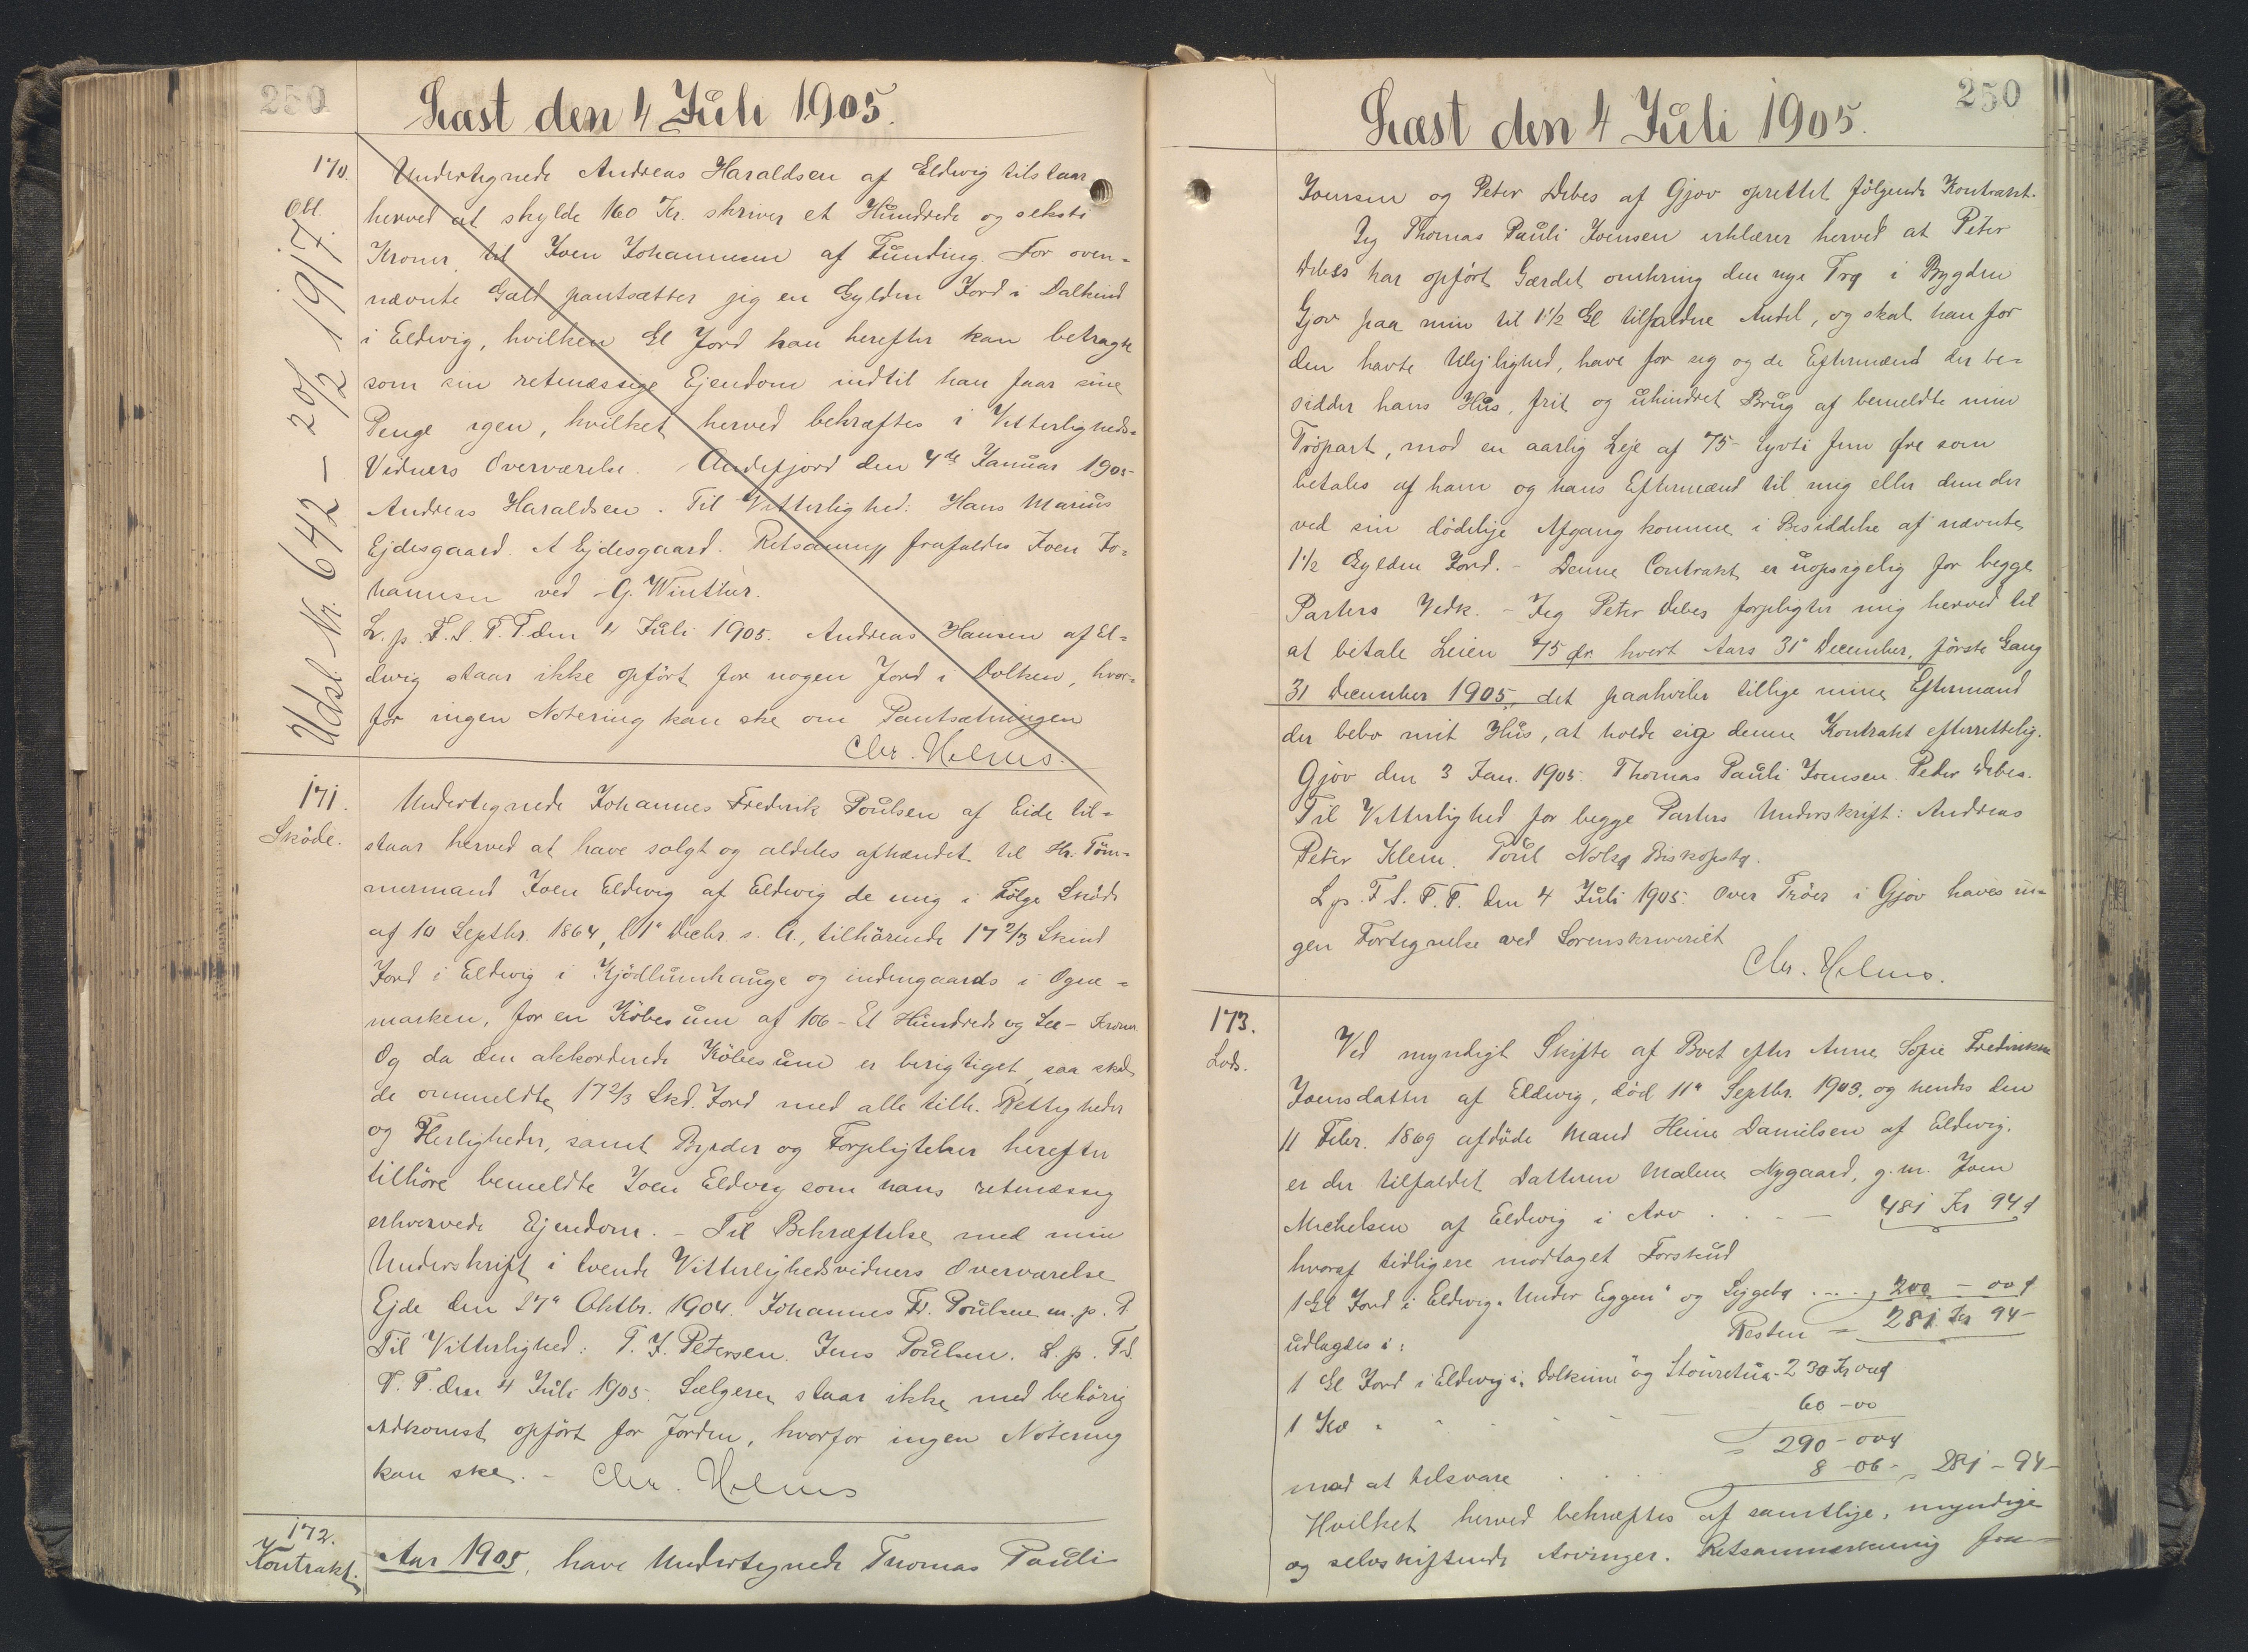 250
Læst den 4 Juli 1905.
170.
Obl.
Udsl. Nr. 642 - 20/2 1917.
Undertegnede Andreas Haraldsen af Eldevig tilstaar
herved at skylde 160 Kr. skriver et Hundrede og seksti
Kroner til Joen Johannesen af Funding. For oven-
nævnte Gæld pantsætter jig en Gylden Jord i Dalkind
i Eldevig, hvilken Gl Jord han herefter kan betragte
som sin retmæssige Ejendom indtil han faar sine
Penge igen, hvilket herved bekræftes i Vitterligheds-
Vidners Overværelse. Andefjord den 4de Januar 1905-
Andreas Haraldsen. Til Vitterlighed: Hans Marius
Ejdesgaard. A Ejdesgaard. Retsanm frafaldes Joen Jo-
hannesen ved G. Winther.
L. p. F. S. T. T. den 4 Juli 1905. Andreas Hansen af El-
devig staar ikke opført for nogen Jord i Dolken, hvor-
for ingen Notering kan ske om Pantsætningen
Chr. Helms.
171.
Skøde.
Undertegnede Johannes Frederik Poulsen af Eide til-
staar herved at have solgt og aldeles afhændet til Hr. Töm-
mermand Joen Eldevig af Eldevig de mig i Følge Skøde
af 10 Septbr. 1864, l 1' Decbr. s. A., tilhørende 17 2/3 Skind
Jord i Eldevig i Kjødlumhauge og indengaards i Ogne-
marken, for en Købesum af 106 - Et Hundrede og Sex - Kroner
Og da den akkorderede Købesum er berigtiget saa skal
de ommeldte 17 2/3 Skd. Jord med alle tilh. Rettigheder
og Herligheder, samt Byrder og Forpligtelser herefter
tilhøre bemeldte Joen Eldevig som hans retmæssig
erhvervede Ejendom. - Til Bekræftelse med min
Underskrift i tvende Vitterlighedsvidners Overværelse
Ejde den 27' Oktbr. 1904. Johannes Fr. Poulsen m. p. P.
Til Vitterlighed: P. J. Petersen. Jens Poulsen. L. p. F. S.
T. T. den 4 Juli 1905. Sælgeren staar ikke med behørig
Adkomst opført for Jorden, hvorfor ingen Notering
kan ske. - Chr. Helms
172.
Kontrakt.
Aar 1905, have Undertegnede Thomas Pauli
250
Læst den 4 Juli 1905.
Joensen og Peter Debes af Gjov oprettet følgende Kontrakt.
Jeg Thomas Pauli Joensen erklærer herved at Peter
Debes har opført Gærdet omkring den nye Trø i Bygden
Gjov paa min til 1 1/2 Gl tilfaldne Andel, og skal han for
den havte Ulejlighed, have for sig og de Eftermænd der be-
sidder hans Hus, frit og uhindret Brug af bemeldte min
Trøpart, mod en aarlig Leje af 75 - syvti fem Øre som
betales af ham og hans Eftermænd til mig eller dem der
ved sin dødelige Afgang komme i Besiddelse af nævnte
1 1/2 Gylden Jord. - Denne Contrakt er uopsigelig for begge
Parters Vedk. - Jeg Peter Debes forpligter mig herved til
at betale Leien 75 Ør. hvert Aars 31' December, første Gang
31 December 1905, det paahviler tillige mine Eftermænd
der bebo mit Hus, at holde sig denne Kontrakt efterrettelig.
Gjov den 3 Jan. 1905. Thomas Pauli Joensen. Peter Debes.
Til Vitterlighed for begge Parters Underskrift: Andreas
Peter Klein. Poul Nolsø Biskopstø.
L. p. F. S. T. T. den 4 Juli 1905. Over Trøer i Gjov haves in-
gen Fortegnelse ved Sorenskriveriet
Chr. Helms.
173.
Lods.
Ved myndigt Skifte af Boet efter Anne Sofie Frederikke
Joensdatter af Eldevig, død 11' Septbr. 1903, og hendes den
11 Febr. 1869 afdøde Mand Heine Danielsen af Eldevig.
er der tilfaldet Datteren Malene Nygaard, g. m. Joen
Michelsen af Eldevig i Arv . . . 481 Kr 94 ø
hvoraf tidligere modtaget Forskud
1 Gl Jord i Eldevig "Under Eggen" og Lejgebø .... 200 - 00 ø
Resten = 281 Kr 94 -
udlagdes i:
1 Gl Jord i Eldevig i "Dolkinu" og Stouretua - 230 Kr 00 ø
1 Ko . . . . . 60 - 00
= 290 - 00 ø
mod at tilsvare . . . 8 - 06 - = 281 - 94 -
Hvilket herved bekræftes af samtlige, myndige
og selvskiftende Arvinger. Retsanmærkning fra-